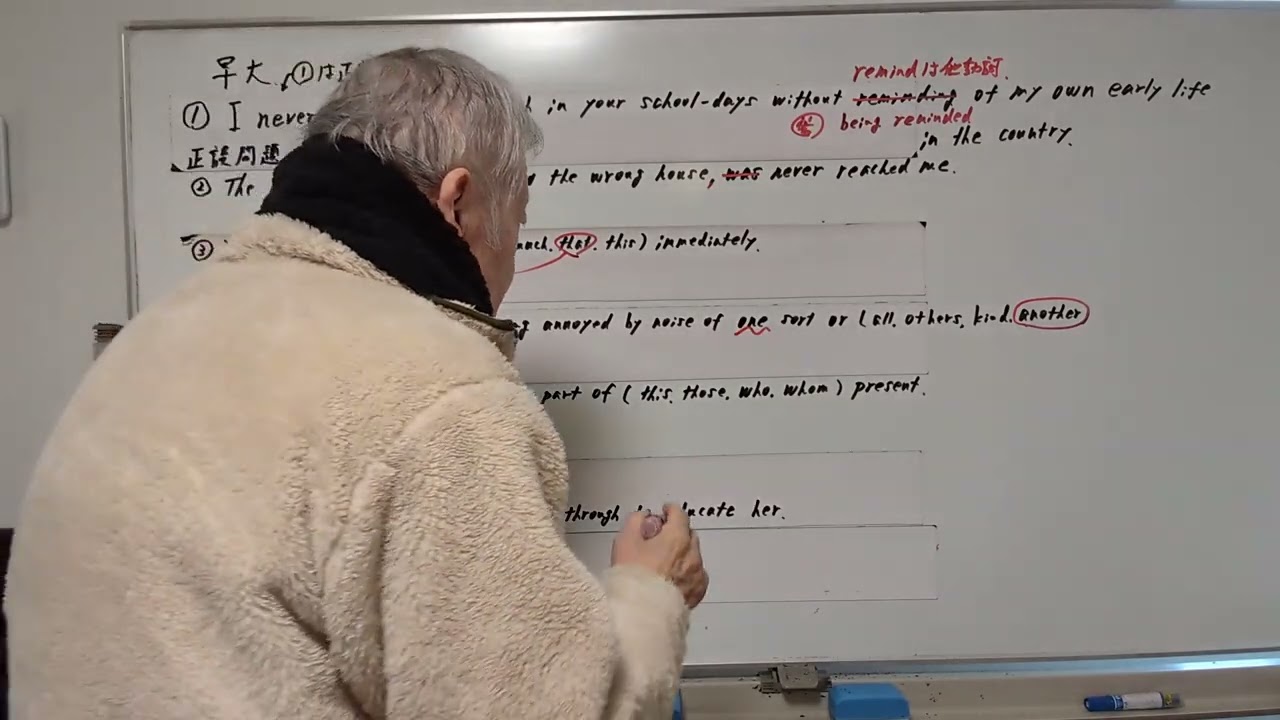 早大 ①は正
remindは他動詞
① I never in your school-days without reminding of my own early life
being reminded
in the country.
正誤問題
② The the wrong house, was never reached me.
③ that. this) immediately.
annoyed by noise of one sort or (all. others. kind. another
part of ( this. those. who. whom ) present.
through her.